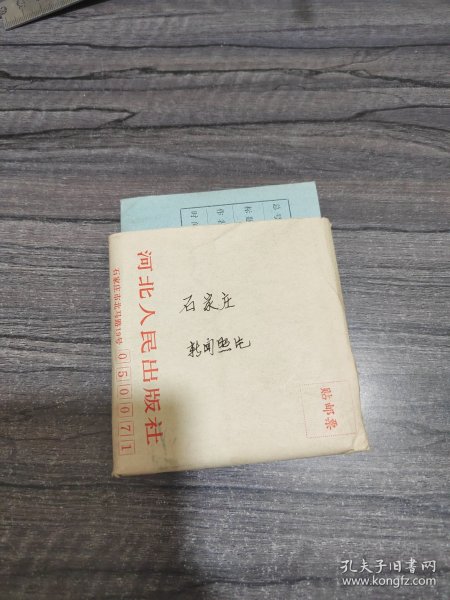 总号
标题
作者
时间
石家庄
新闻照片
河北人民出版社
石家庄市北马路19号
050071
贴邮票
孔夫子旧书网
www.kongfz.com